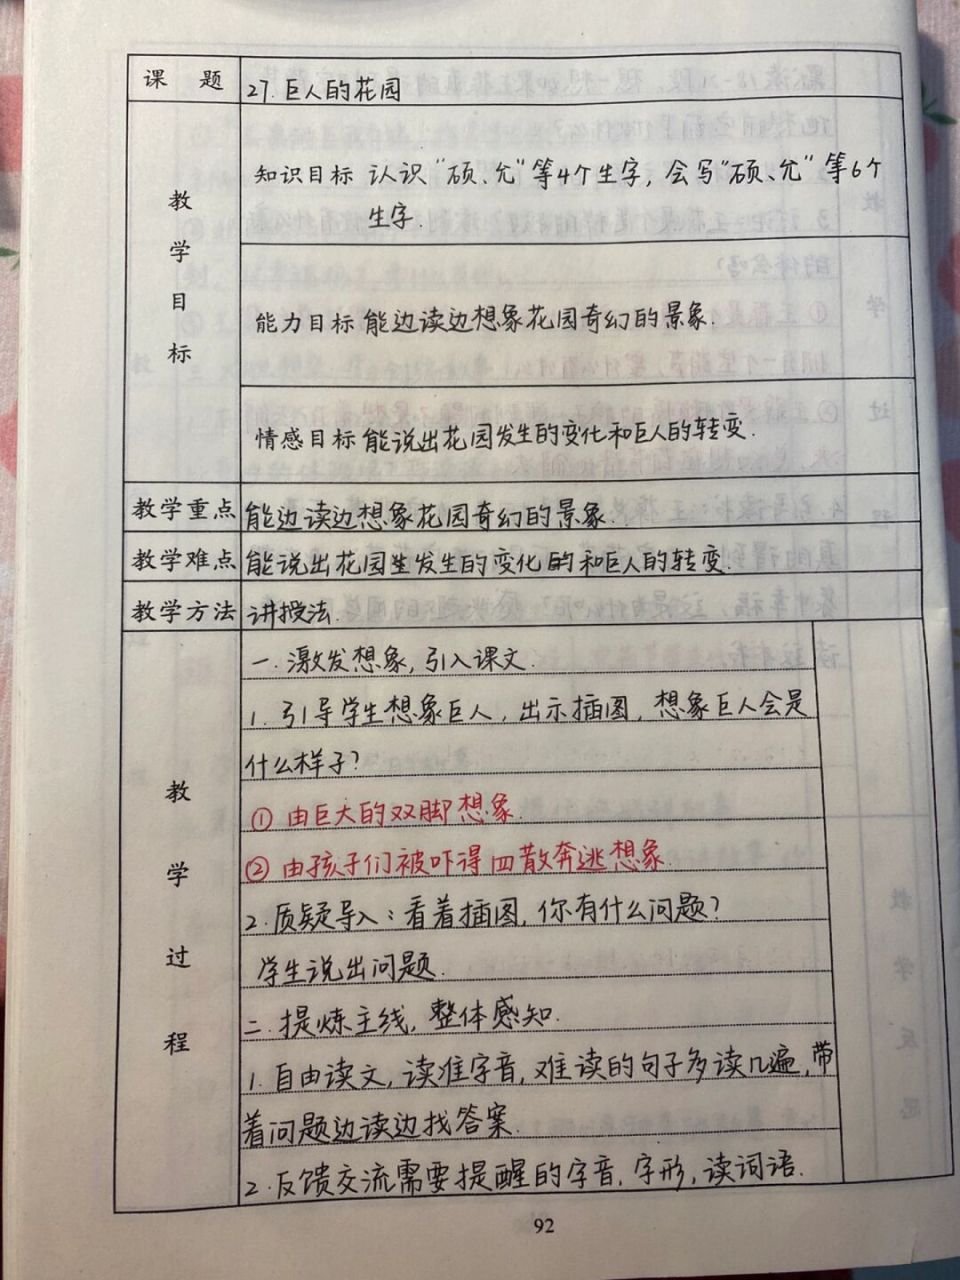 课 题 27. 巨人的花园
教学目标
知识目标 认识“硕、允”等4个生字, 会写“硕、允”等6个
生字.
能力目标 能边读边想象花园奇幻的景象.
情感目标 能说出花园发生的变化和巨人的转变.
教学重点 能边读边想象花园奇幻的景象.
教学难点 能说出花园发生的变化的和巨人的转变.
教学方法 讲授法.
教学过程
一. 激发想象, 引入课文.
1. 引导学生想象巨人, 出示插图, 想象巨人会是
什么样子?
① 由巨大的双脚想象.
② 由孩子们被吓得四散奔逃想象.
2. 质疑导入: 看着插图, 你有什么问题?
学生说出问题.
二. 提炼主线, 整体感知.
1. 自由读文, 读准字音, 难读的句子多读几遍, 带
着问题边读边找答案.
2. 反馈交流需要提醒的字音, 字形, 读词语.
92